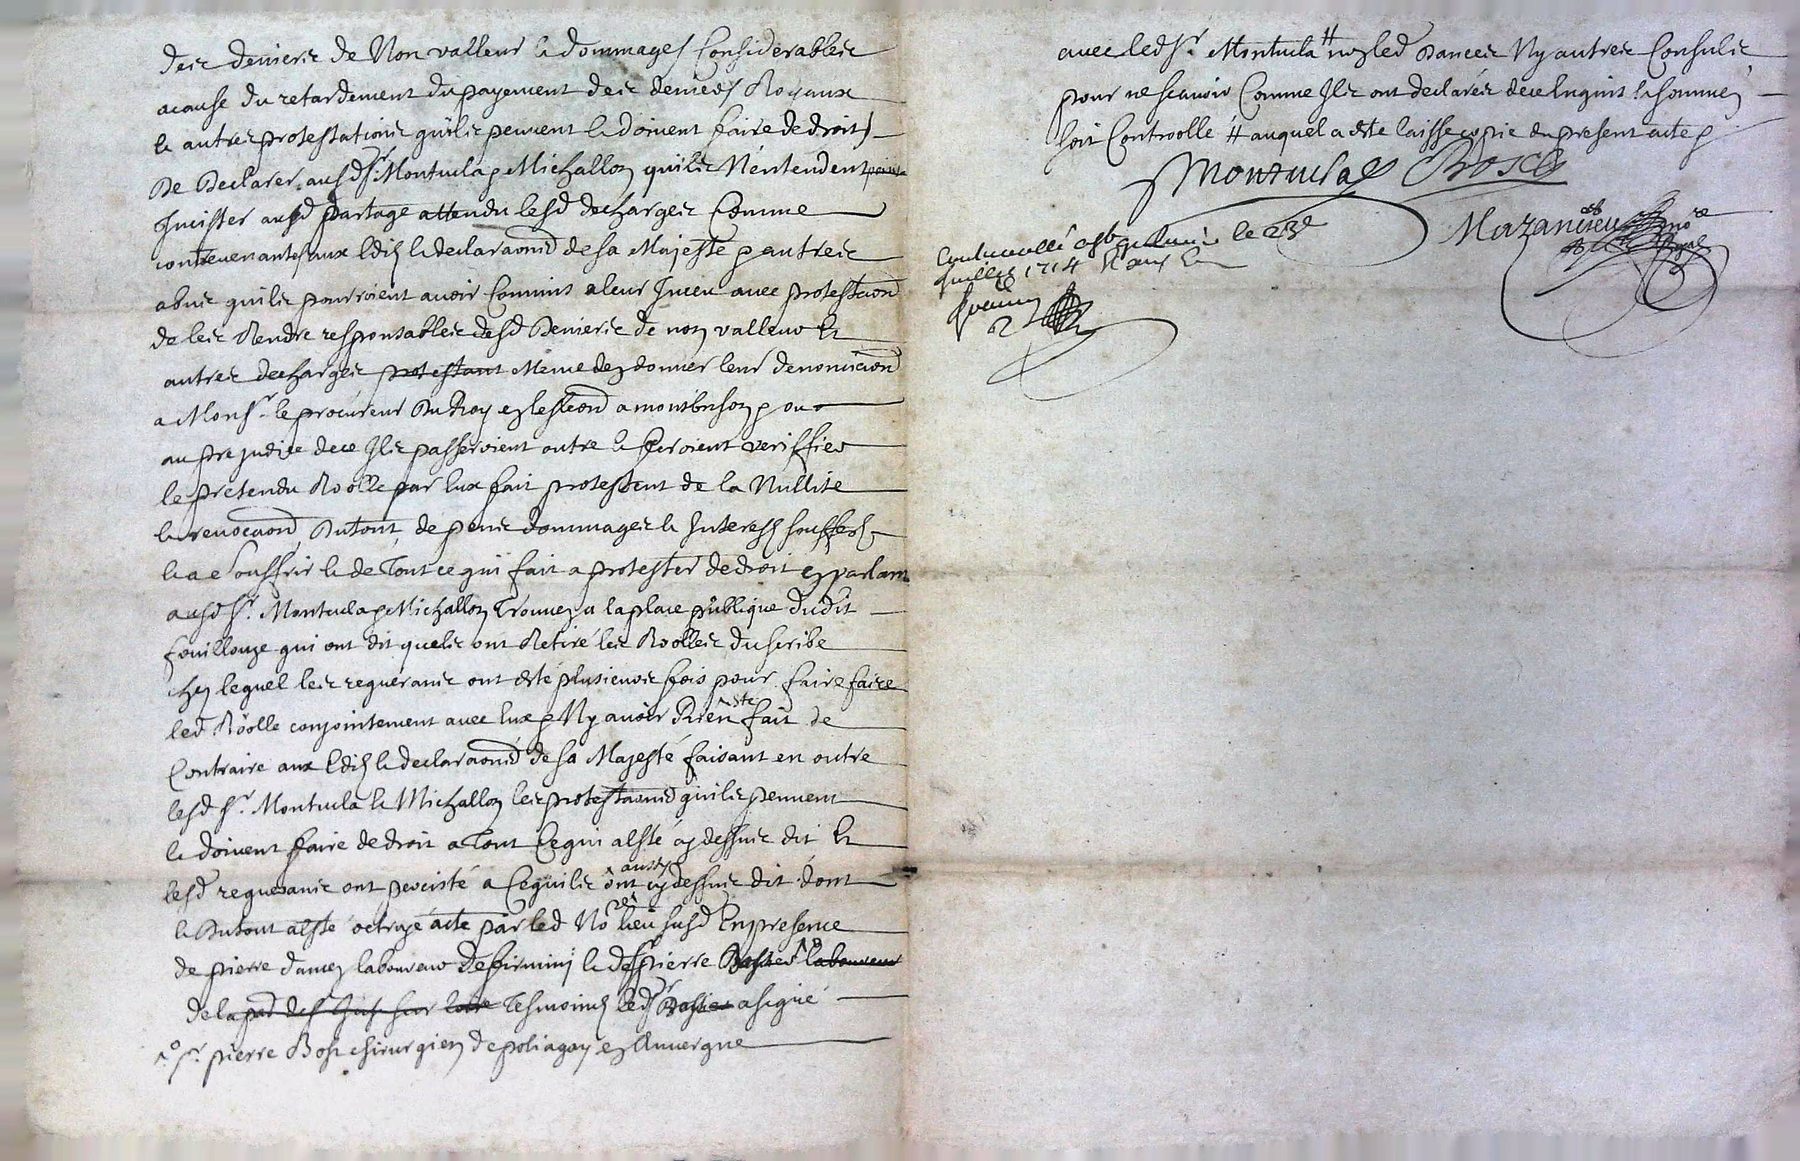 des deniers de Non valleur & dommages Considerables
acause du retardement du payement des deniers Royaux
& autres protestations quils peuvent & doivent faire de droit
De Declarer ausd sr. Montucla & Michallon quils Nentendent point
Incister ausd partage attendu lesd decharges Comme
contrevenantes aux Edits & declaraons de sa Majesté & autres
abus quils pourroient avoir Commis a leur Inceu avec protestaon
de les Rendre responsables desd Deniers de non valleur Et
autres decharges protestant Meme den donner leur denonciaon
a Monsr. le procureur Du Roy en leslection a montbrison & ou
au prejudice dece Ils passeroient outre & feroient veriffier
le pretendu Roolle par Eux fait protestent de la Nullité
& revocaon Dutout, de penes dommages & Interests soufferts
& a Souffrir & de Tout ce qui fait a protester de droit en parlant
ausd sr. Montucla & Michallon Trouvez a la place publique dudit
fouillouze qui ont dit quels ont Retiré les Roolles du scribe
chez lequel les requerants ont esté plusieurs fois pour faire faire
led Roolle conjointement avec Eux & Ny avoir Rien fait de
Contraire aux Edits & declaraons de sa Majesté faisant en outre
lesd sr. Montucla & Michallon les protestaons quils peuvent
& doivent faire de droit a Tout Cequi a esté cy dessus dit Et
lesd requerants ont percisté a Cequils ont aussy cy dessus dit dont
& Dutout a esté octroyé acte par led Nore lieu susd En presence
de pierre dancer laboureur de firminy & de sr pierre laboureur
de la Tesmoins led sr a signé
sr. pierre Bosc chirurgien de en Auvergne
avec led sr. Montucla # non led Dancer Ny autres Consuls
pour ne scavoir Comme Ils ont declarés dece Enquis & sommés
soit Controollé # auquel a esté laissé copie du present acte
Montucla Bosc
Mazancieu nore royal
Controollé le 23e
Juillet 1714